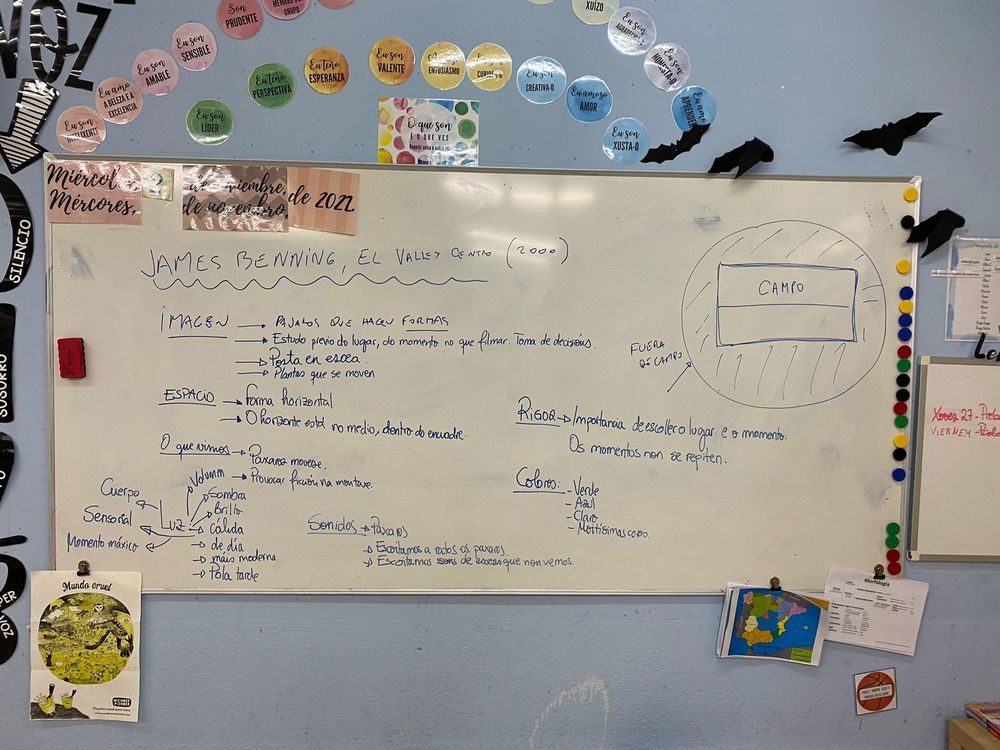 Son PRUDENTE
GRUPO
XUÍZO
Eu son SENSIBLE
Eu son AMABLE
Eu amo A BELEZA E A EXCELENCIA
Eu son LÍDER
Eu teño PERSPECTIVA
Eu teño ESPERANZA
Eu son VALENTE
ENTUSIASMO
Eu son CREATIVA-O
Eu amoso AMOR
Eu son XUSTA-O
Eu amo APRENDER
Eu son HONESTA-O
O que son
É O QUE VES
VOZ
SILENCIO
SUSURRO
VOZ
Mércores,
2
de novembro,
de 2022
JAMES BENNING, EL VALLEY CENTRO (2000)
IMAGEN → PÁJAROS QUE HACEN FORMAS
→ Estudo previo do lugar, do momento no que filmar. Toma de decisións.
→ Posta en escea.
→ Plantas que se moven
ESPACIO → Forma horizontal
→ O horizonte está no medio, dentro do encadre.
O que vimos → Paxaros moverse.
→ Provocar ficción na montaxe.
Cuerpo
Sensorial
Momento máxico
LUZ
Volumen
Sombra
Brillo
→ Cálida
→ de día
→ máis moderna
→ Pola tarde
Sonidos → Paxaros
→ Escoitamos a ratos os paxaros.
→ Escoitamos sons de cousas que non vemos.
CAMPO
FUERA DE CAMPO
RIGOR → Importancia de escoller o lugar e o momento.
Os momentos non se repiten.
Colores:
- Verde
- Azul
- Claro
- Moitísimas cores.
Xoves 27 -
VIERNEY -
Mundo cruel
WONDER PONDER
Morfología